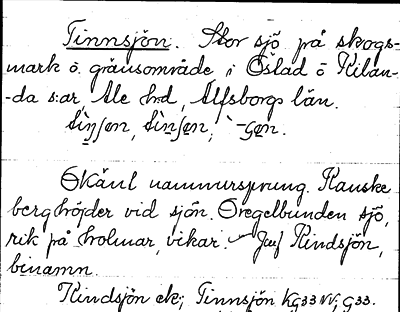 Tinnsjön. Stor sjö på skogs-
mark ö. gränsområde i Östad ö Kilan-
-da s:ar, Ale hrd, Älfsborgs län.
Okänt namnursprung. Kanske
berghöjder vid sjön. Oregelbunden sjö,
rik på holmar, vikar. Jmf Kindsjön,
binamn.
Kindsjön ek; Tinnsjön Kg33NV, G33.